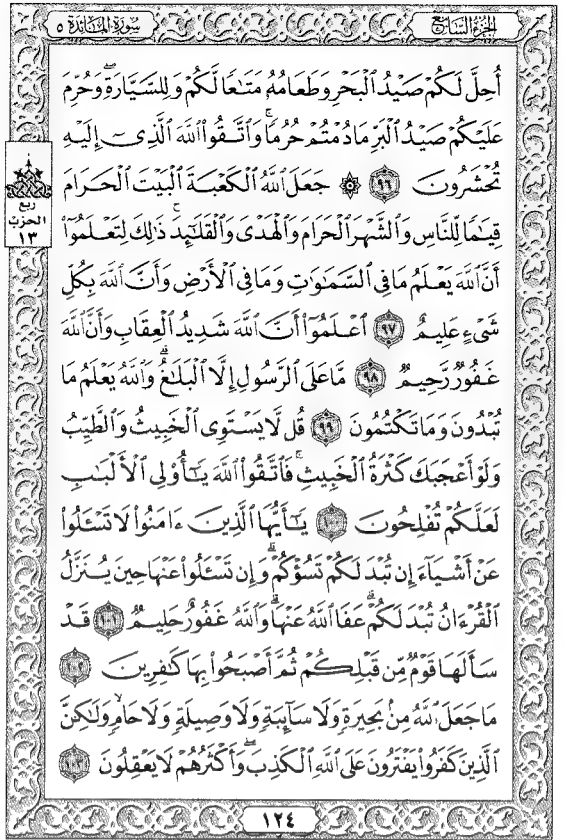 الجزء السابع
سورة المائدة ٥
أُحِلَّ لَكُمْ صَيْدُ ٱلْبَحْرِ وَطَعَامُهُۥ مَتَـٰعًا لَّكُمْ وَلِلسَّيَّارَةِۖ وَحُرِّمَ
عَلَيْكُمْ صَيْدُ ٱلْبَرِّ مَا دُمْتُمْ حُرُمًاۗ وَٱتَّقُوا۟ ٱللَّهَ ٱلَّذِىٓ إِلَيْهِ
تُحْشَرُونَ ٩٦ ۞ جَعَلَ ٱللَّهُ ٱلْكَعْبَةَ ٱلْبَيْتَ ٱلْحَرَامَ
قِيَـٰمًا لِّلنَّاسِ وَٱلشَّهْرَ ٱلْحَرَامَ وَٱلْهَدْىَ وَٱلْقَلَـٰٓئِدَۚ ذَٰلِكَ لِتَعْلَمُوٓا۟
أَنَّ ٱللَّهَ يَعْلَمُ مَا فِى ٱلسَّمَـٰوَٰتِ وَمَا فِى ٱلْأَرْضِ وَأَنَّ ٱللَّهَ بِكُلِّ
شَىْءٍ عَلِيمٌ ٩٧ ٱعْلَمُوٓا۟ أَنَّ ٱللَّهَ شَدِيدُ ٱلْعِقَابِ وَأَنَّ ٱللَّهَ
غَفُورٌ رَّحِيمٌ ٩٨ مَّا عَلَى ٱلرَّسُولِ إِلَّا ٱلْبَلَـٰغُۗ وَٱللَّهُ يَعْلَمُ مَا
تُبْدُونَ وَمَا تَكْتُمُونَ ٩٩ قُل لَّا يَسْتَوِى ٱلْخَبِيثُ وَٱلطَّيِّبُ
وَلَوْ أَعْجَبَكَ كَثْرَةُ ٱلْخَبِيثِۚ فَٱتَّقُوا۟ ٱللَّهَ يَـٰٓأُو۟لِى ٱلْأَلْبَـٰبِ
لَعَلَّكُمْ تُفْلِحُونَ ١٠٠ يَـٰٓأَيُّهَا ٱلَّذِينَ ءَامَنُوا۟ لَا تَسْـَٔلُوا۟
عَنْ أَشْيَآءَ إِن تُبْدَ لَكُمْ تَسُؤْكُمْ وَإِن تَسْـَٔلُوا۟ عَنْهَا حِينَ يُنَزَّلُ
ٱلْقُرْءَانُ تُبْدَ لَكُمْ عَفَا ٱللَّهُ عَنْهَاۗ وَٱللَّهُ غَفُورٌ حَلِيمٌ ١٠١ قَدْ
سَأَلَهَا قَوْمٌ مِّن قَبْلِكُمْ ثُمَّ أَصْبَحُوا۟ بِهَا كَـٰفِرِينَ ١٠٢
مَا جَعَلَ ٱللَّهُ مِنۢ بَحِيرَةٍ وَلَا سَآئِبَةٍ وَلَا وَصِيلَةٍ وَلَا حَامٍۙ وَلَـٰكِنَّ
ٱلَّذِينَ كَفَرُوا۟ يَفْتَرُونَ عَلَى ٱللَّهِ ٱلْكَذِبَۖ وَأَكْثَرُهُمْ لَا يَعْقِلُونَ ١٠٣
ربع
الحزب
١٣
١٢٤